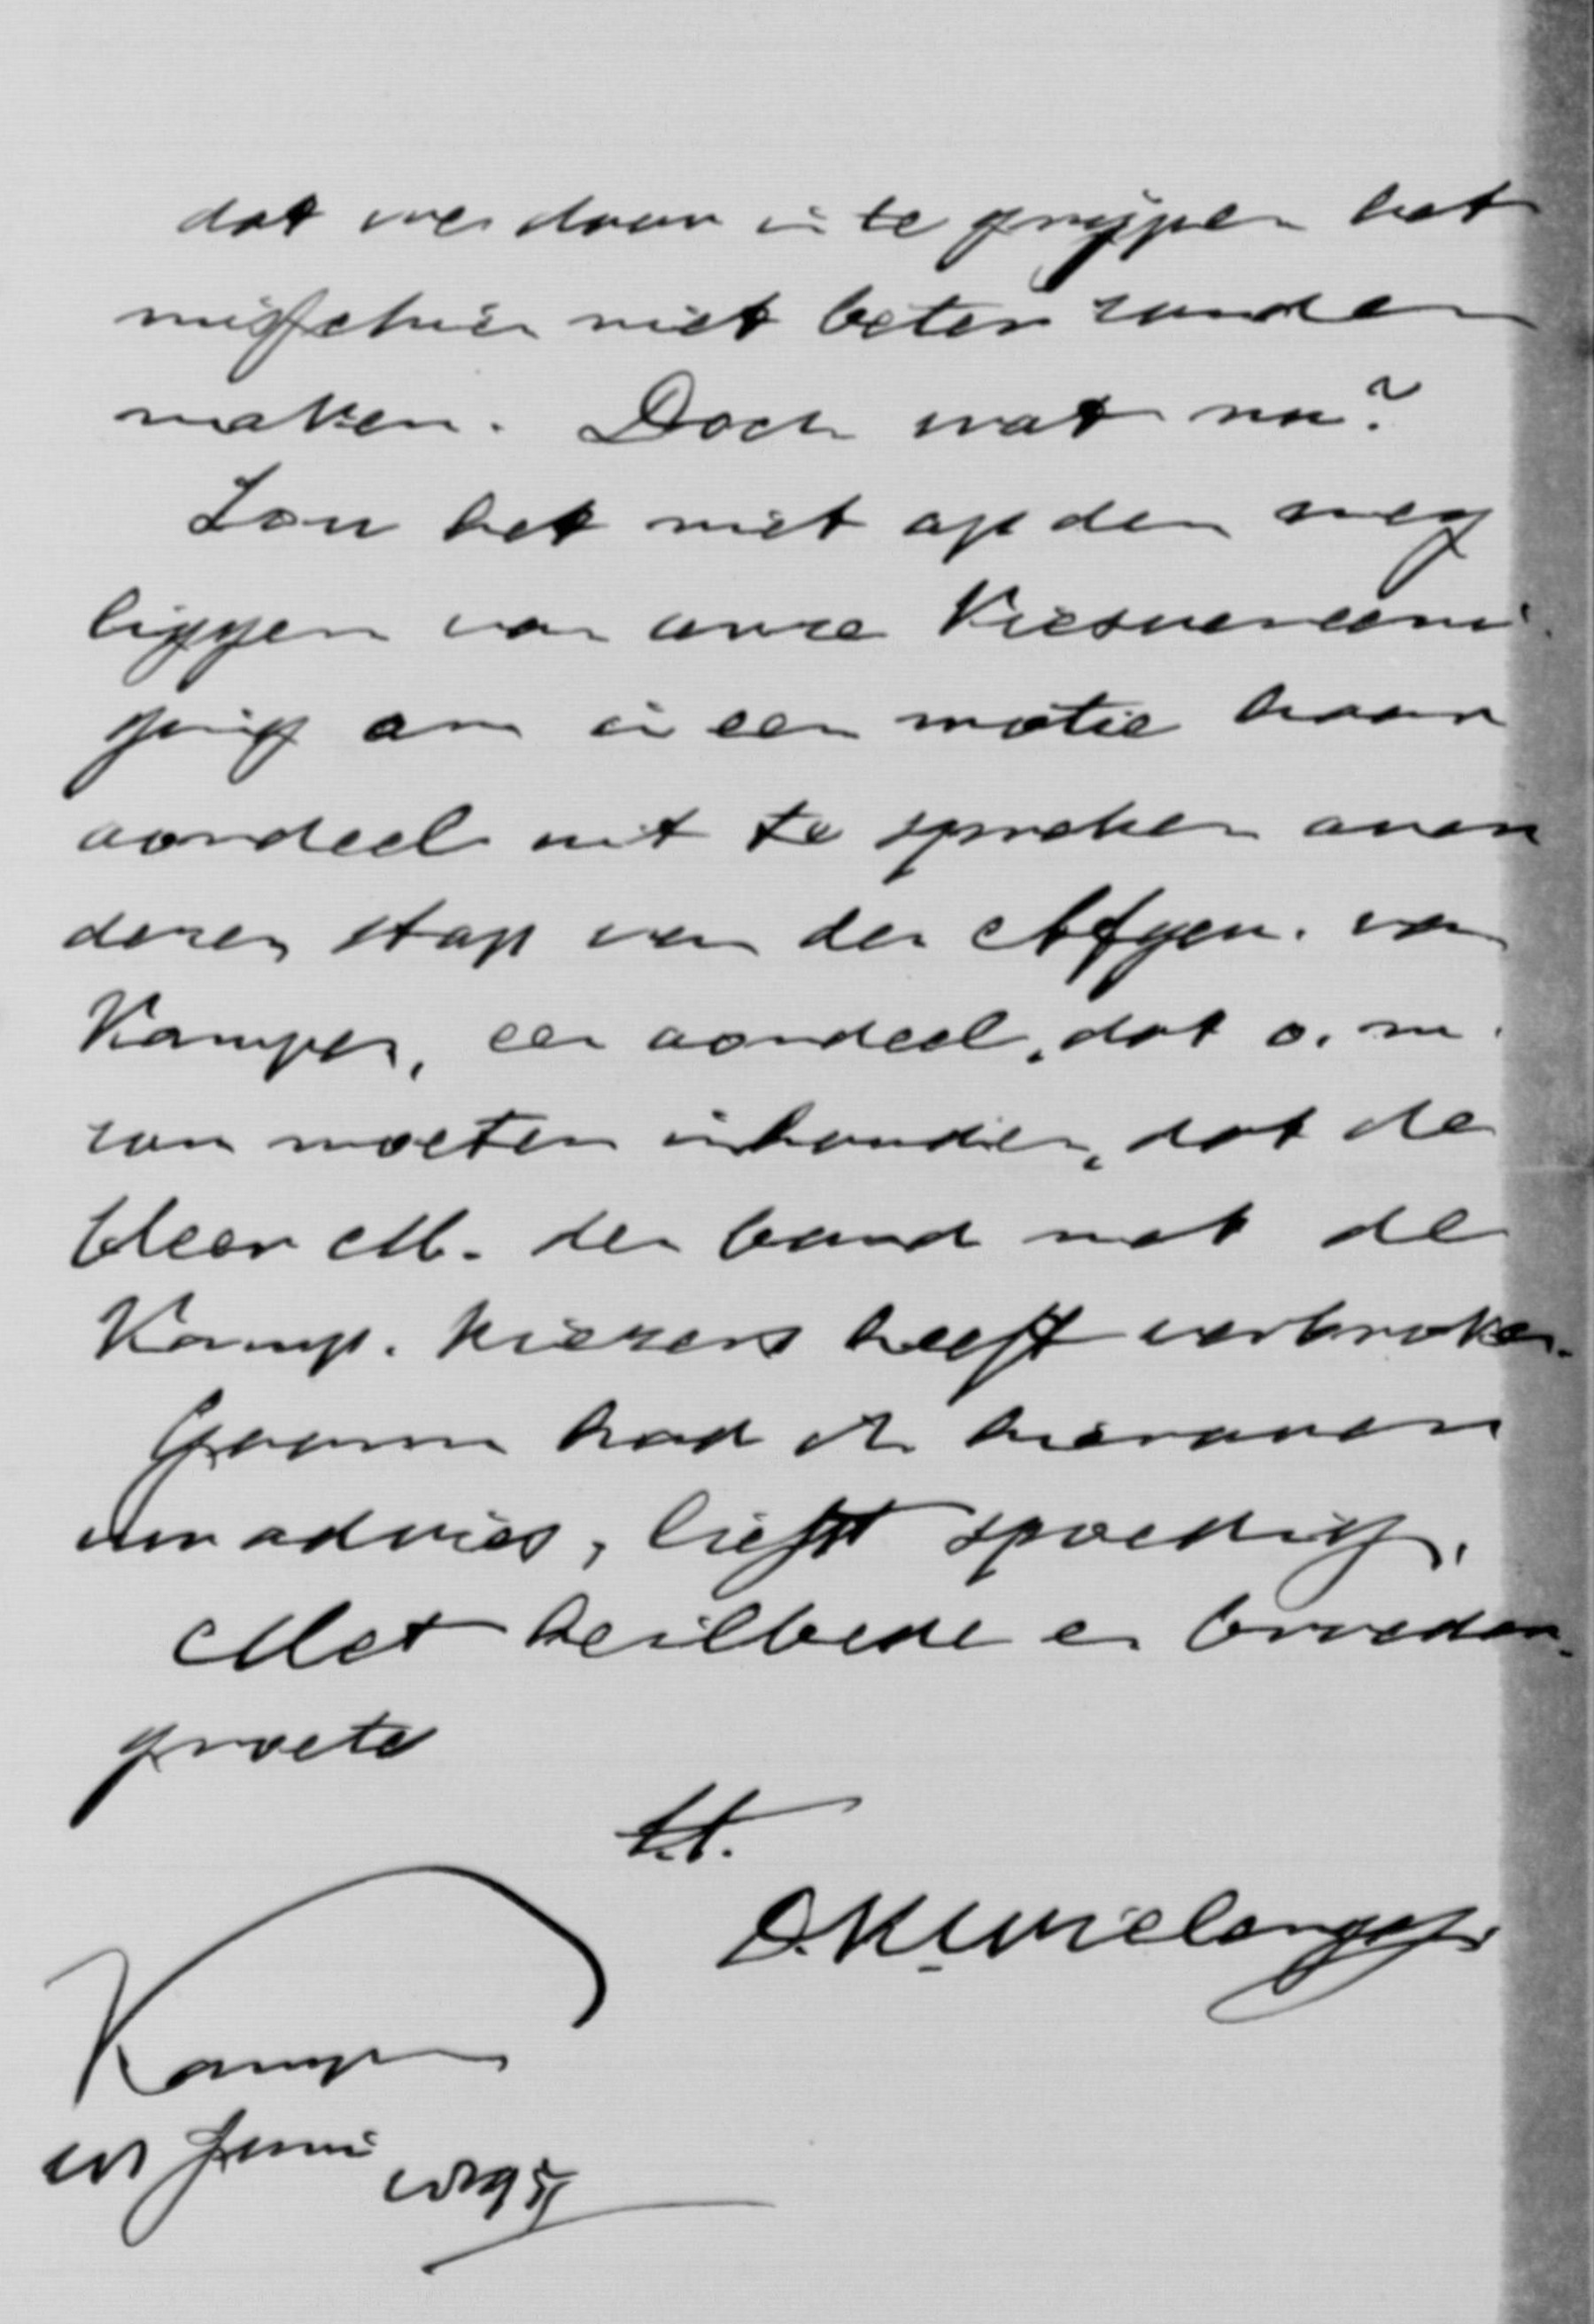 dat we door in te grijpen het
misschien niet beter zouden
maken. Doch wat nu?
Zou het niet op den weg
liggen van onze Kiesvereeni-
ging om in een motie haar
oordeel uit te spreken over
dezen stap van den Afgev. van
Kampen, een oordeel, dat o. m.
zou moeten inhouden, dat de
Heer M. den band met de
Kamp. kiezers heeft verbroken.
Gaarne had ik hierover
uw advies, liefst spoedig.
Met heilbede en broeder-
groete
t.t.
Kampen
Juni